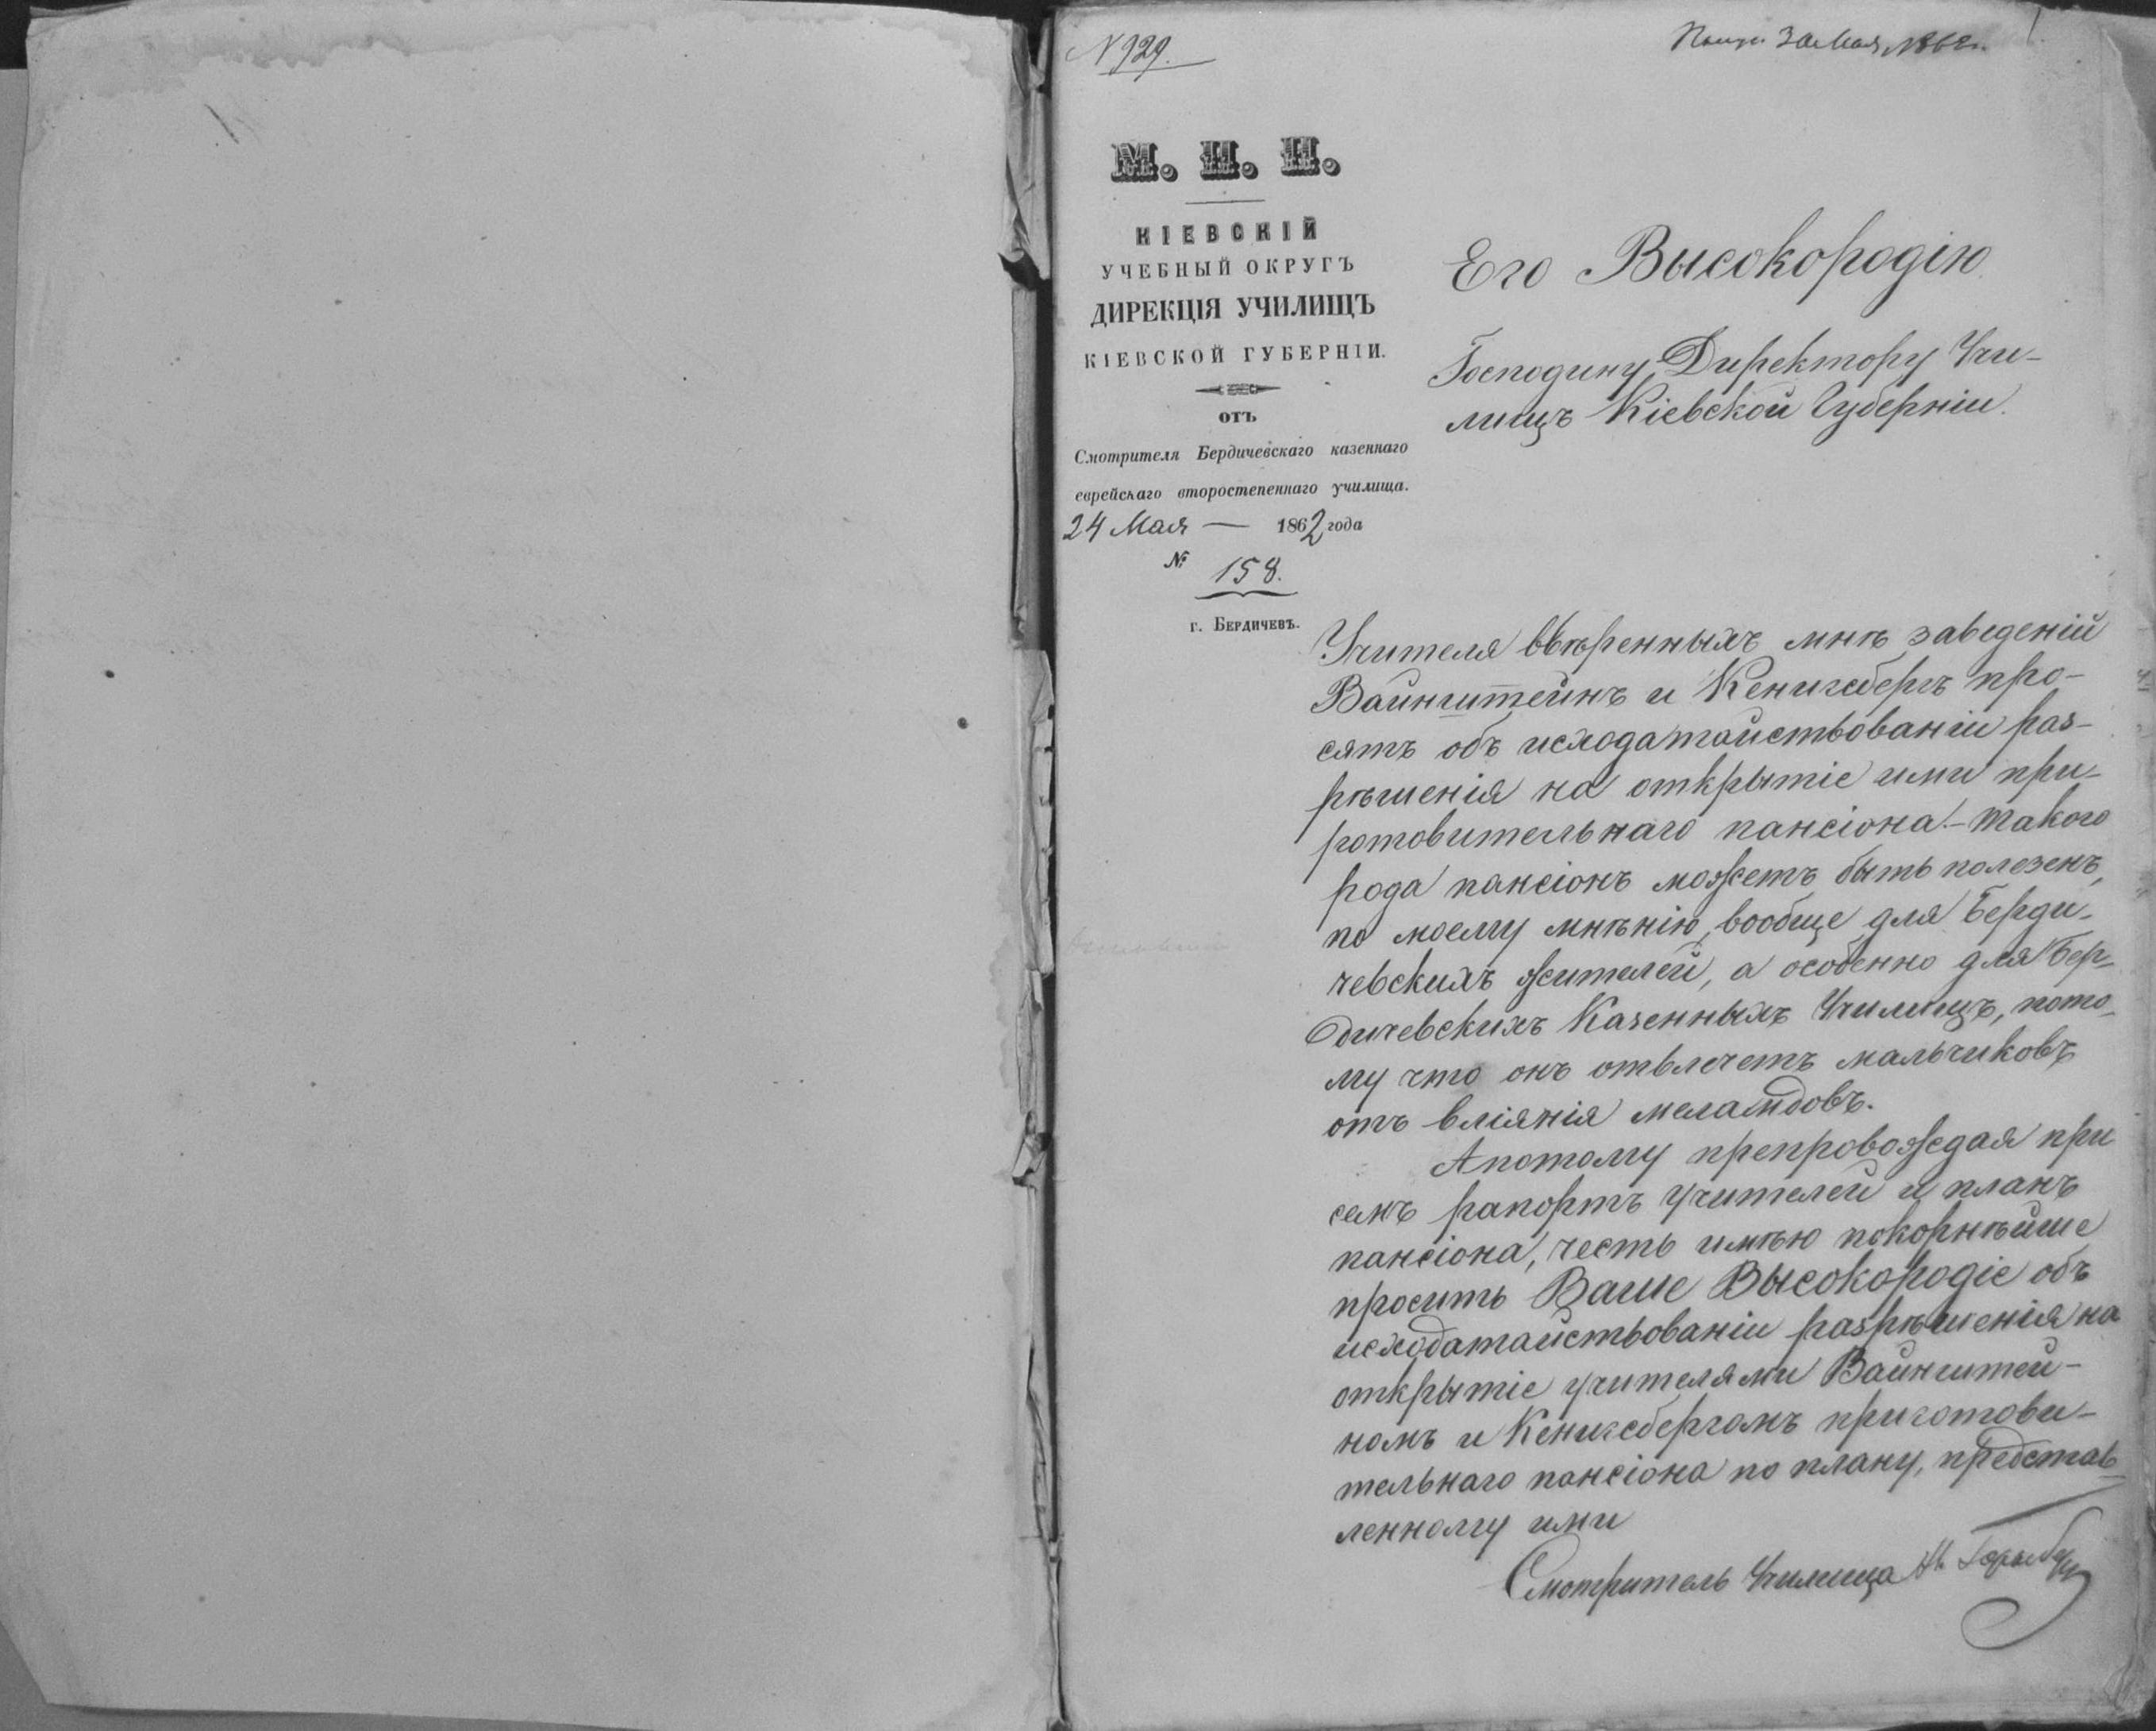 N 929.
30 Мая 1862 г.
М. Н. П.
КІЕВСКІЙ
УЧЕБНЫЙ ОКРУГЪ
ДИРЕКЦІЯ УЧИЛИЩЪ
КІЕВСКОЙ ГУБЕРНІИ.
отъ
Смотрителя Бердичевскаго казеннаго
еврейскаго второстепеннаго училища.
24 Мая — 1862 года
№ 158.
г. Бердичевъ.
Его Высокородію
Господину Директору Учи-
лищъ Кіевской Губерніи.
Учителя ввѣренныхъ мнѣ заведеній
Вайнштейнъ и Кенигсбергъ про-
сятъ объ исходатайствованіи раз-
рѣшенія на открытіе ими при-
готовительнаго пансіона. - Такого
рода пансіонъ можетъ быть полезенъ,
по моему мнѣнію, вообще для Берди-
чевскихъ жителей, а особенно для Бер-
дичевскихъ Казенныхъ Училищъ, пото-
му что онъ отвлечетъ мальчиковъ
отъ вліянія меламдовъ.
А потому препровождая при
семъ рапортъ учителей и планъ
пансіона, честь имѣю покорнѣйше
просить Ваше Высокородіе объ
исходатайствованіи разрѣшенія на
открытіе учителями Вайнштей-
номъ и Кенигсбергомъ приготови-
тельнаго пансіона по плану, представ-
ленному ими
Смотритель Училища